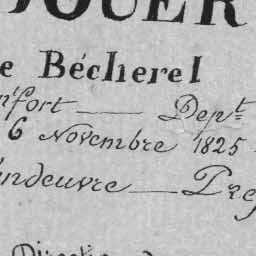 JOUER
e Bécherel
nfort — Dept
6 Novembre 1825
endeuvre — Pref
Directi